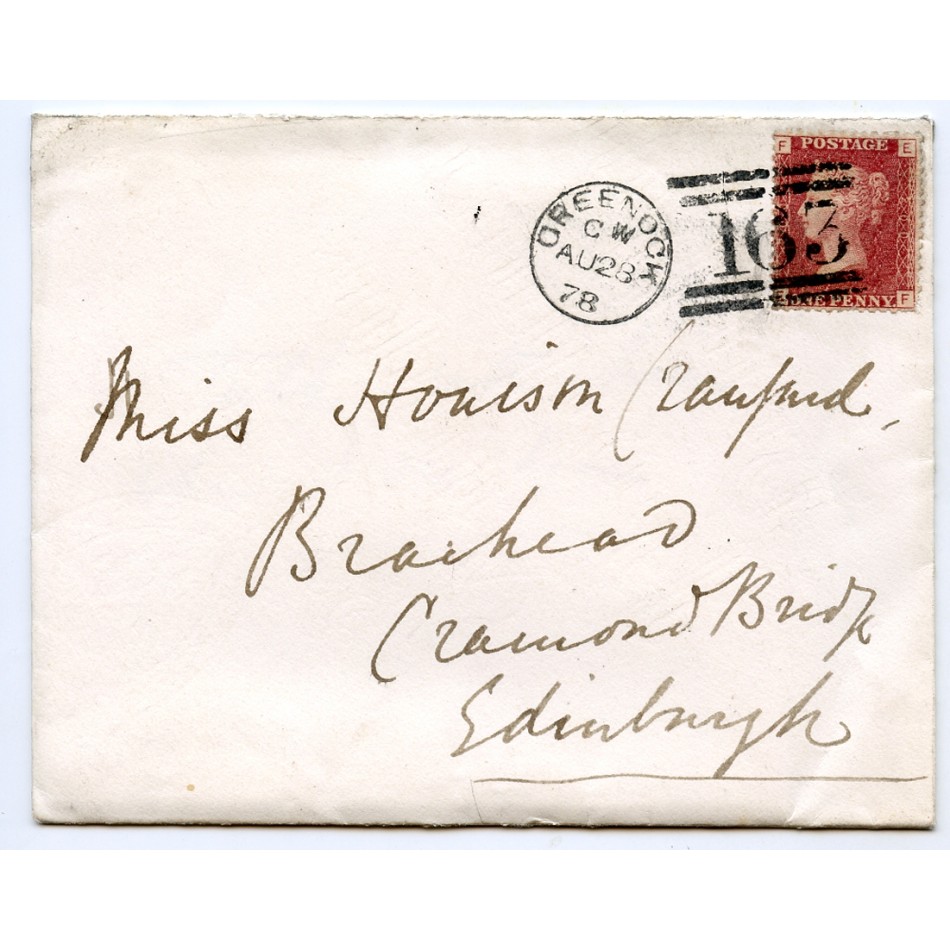 F POSTAGE E
GREENOCK
CW
AU28
78
163
E ONE PENNY. F
Miss Houison Craufurd,
Braehead
Cramond Bridge
Edinburgh